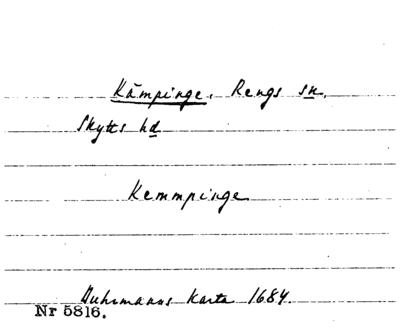 Kämpinge. Rengs sn.
Skytts hd
Kemmpinge
Buhrmanns Karta 1684.
Nr 5816.